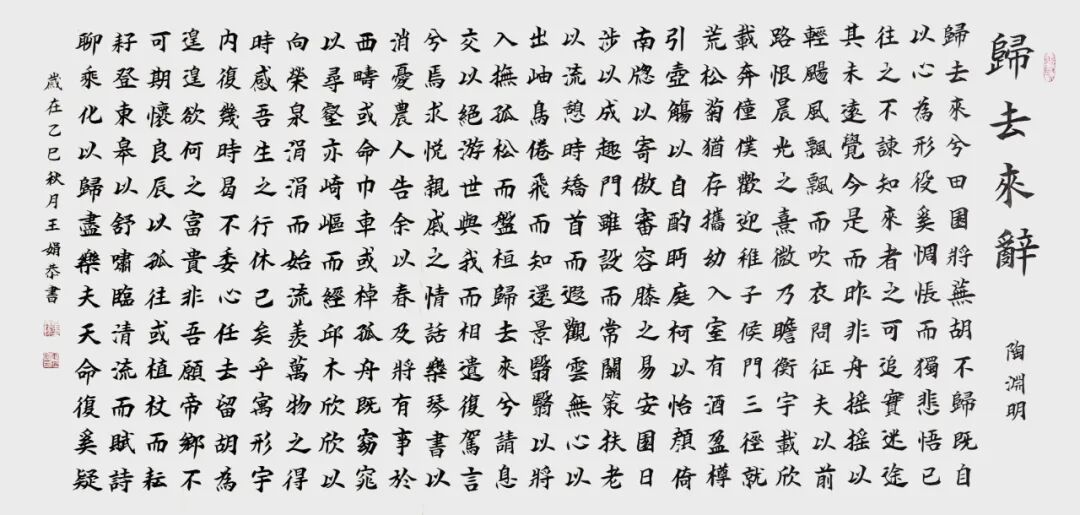 歸去來辭
陶淵明
歸去來兮田園將蕪胡不歸既自
以心為形役奚惆悵而獨悲悟已
往之不諫知來者之可追實迷途
其未遠覺今是而昨非舟搖搖以
輕颺風飄飄而吹衣問征夫以前
路恨晨光之熹微乃瞻衡宇載欣
載奔僮僕歡迎稚子候門三徑就
荒松菊猶存攜幼入室有酒盈樽
引壺觴以自酌眄庭柯以怡顏倚
南牕以寄傲審容膝之易安園日
涉以成趣門雖設而常關策扶老
以流憩時矯首而遐觀雲無心以
出岫鳥倦飛而知還景翳翳以將
入撫孤松而盤桓歸去來兮請息
交以絕游世與我而相遺復駕言
兮焉求悅親戚之情話樂琴書以
消憂農人告余以春及將有事於
西疇或命巾車或棹孤舟既窈窕
以尋壑亦崎嶇而經邱木欣欣以
向榮泉涓涓而始流羨萬物之得
時感吾生之行休已矣乎寓形宇
内復幾時曷不委心任去留胡為
遑遑欲何之富貴非吾願帝鄉不
可期懷良辰以孤往或植杖而耘
耔登東皋以舒嘯臨清流而賦詩
聊乘化以歸盡樂夫天命復奚疑
歲在乙巳秋月王娟恭書